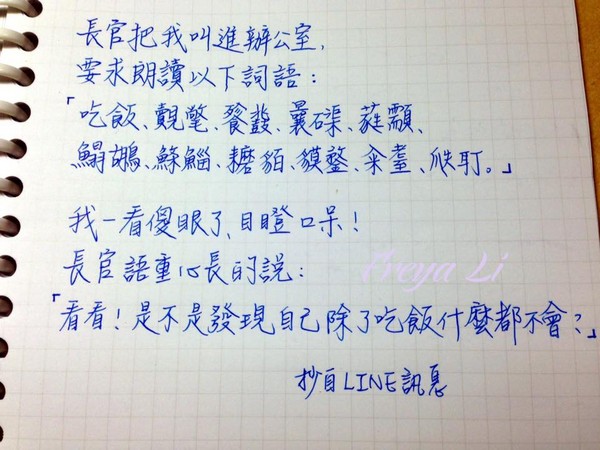 長官把我叫進辦公室,
要求朗讀以下詞語:
「吃飯、覿氅、餮
鼗、曩礫、蕤顬、
鰨鶘、
貘鏊、籴耋、
我一看傻眼了、目瞪口呆!
長官語重心長的說:
「看看!是不是發現自己除了吃飯什麼都不會?」
抄自LINE訊息
Freya Li